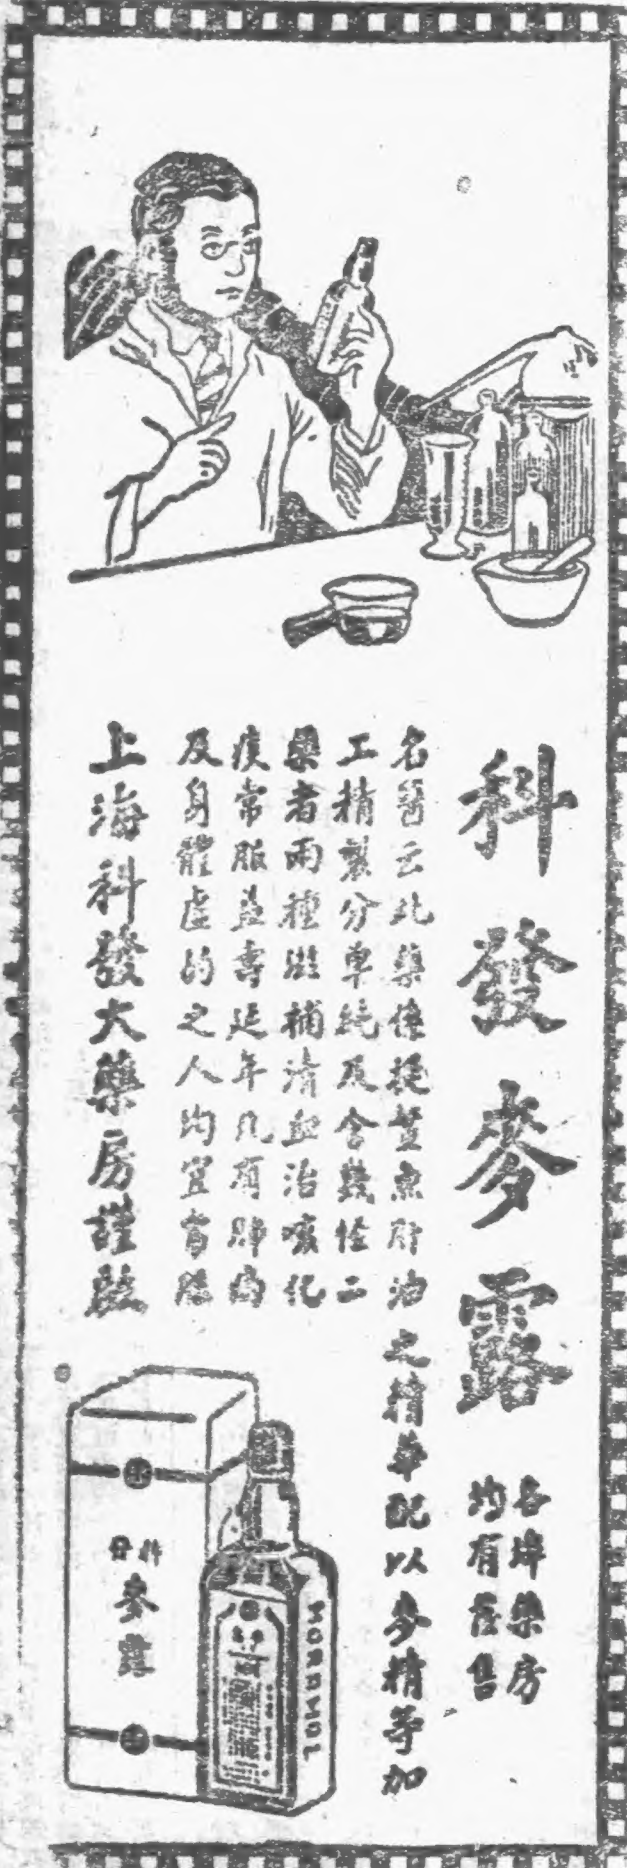 科發麥露
各埠藥房
均有產售
名醫云此藥係提鰵魚肝油之精華配以麥精等加
工精製分單純及含幾怪二
藥者兩種滋補清血治咳化
痰常服益壽延年凡有肺病
及身體虛弱之人均宜
上海科發大藥房謹啟
科發
麥露
MORRHOL